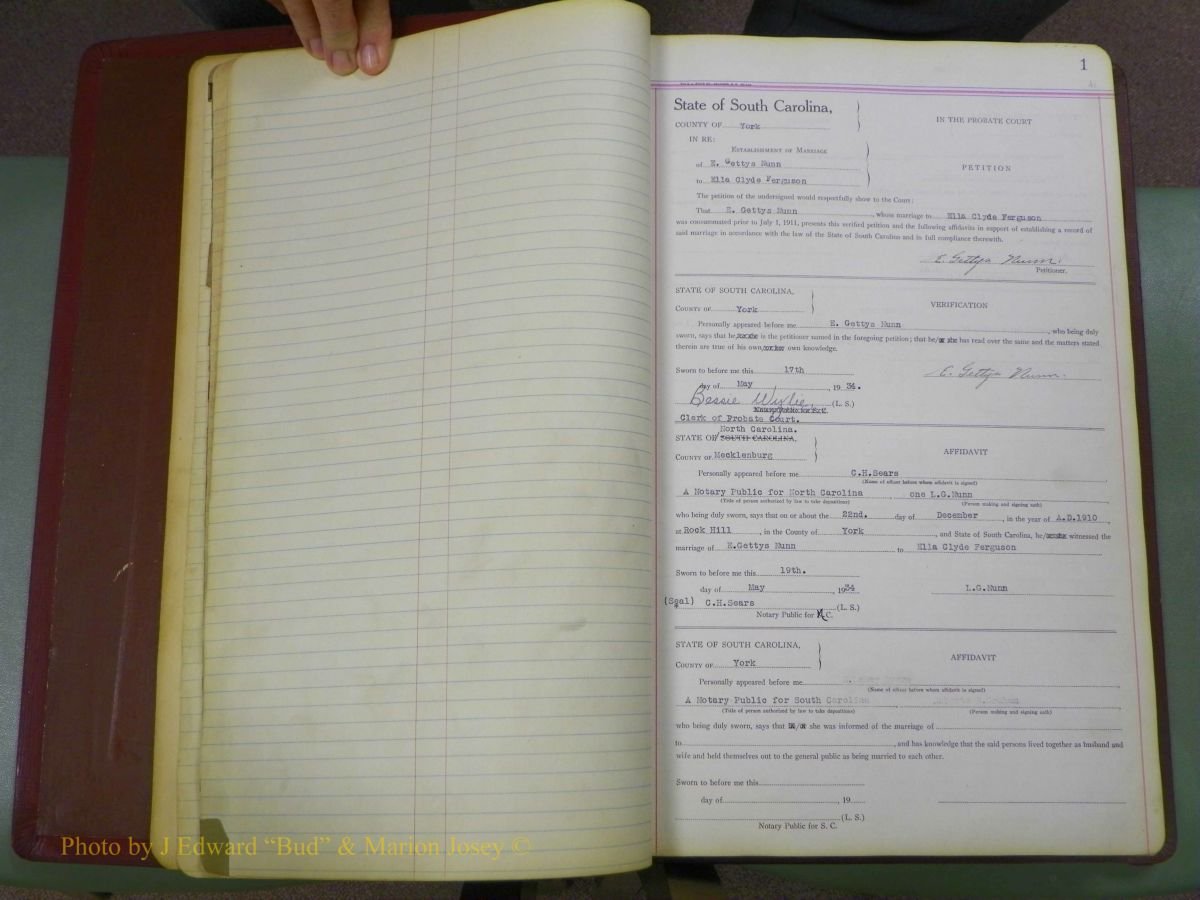 1
State of South Carolina,
COUNTY OF York
IN THE PROBATE COURT
IN RE:
ESTABLISHMENT OF MARRIAGE
of E. Gettys Nunn
PETITION
to Ella Clyde Ferguson
The petition of the undersigned would respectfully show to the Court:
That E. Gettys Nunn, whose marriage to Ella Clyde Ferguson
was consummated prior to July 1, 1911, presents this verified petition and the following affidavits in support of establishing a record of
said marriage in accordance with the law of the State of South Carolina and in full compliance therewith.
E. Gettys Nunn.
Petitioner.
STATE OF SOUTH CAROLINA,
VERIFICATION
COUNTY OF York
Personally appeared before me E. Gettys Nunn, who being duly
sworn, says that he/or she is the petitioner named in the foregoing petition; that he/or she has read over the same and the matters stated
therein are true of his own/or her own knowledge.
Sworn to before me this 17th
E. Gettys Nunn.
day of May, 1934.
Bessie Wylie (L. S.)
Notary Public for S. C.
Clerk of Probate Court.
North Carolina.
STATE OF SOUTH CAROLINA,
AFFIDAVIT
COUNTY OF Mecklenburg
Personally appeared before me C.H.Sears
(Name of officer before whom affidavit is signed)
A Notary Public for North Carolina, one L.G.Nunn
(Title of person authorized by law to take depositions) (Person making and signing oath)
who being duly sworn, says that on or about the 22nd. day of December, in the year of A.D.1910
at Rock Hill, in the County of York, and State of South Carolina, he/or she witnessed the
marriage of E.Gettys Nunn to Ella Clyde Ferguson
Sworn to before me this 19th.
day of May, 1934
L.G.Nunn
(Seal) C.H.Sears (L. S.)
Notary Public for N.C.
STATE OF SOUTH CAROLINA,
AFFIDAVIT
COUNTY OF York
Personally appeared before me
(Name of officer before whom affidavit is signed)
A Notary Public for South Carolina
(Title of person authorized by law to take depositions) (Person making and signing oath)
who being duly sworn, says that he/or she was informed of the marriage of
to, and has knowledge that the said persons lived together as husband and
wife and held themselves out to the general public as being married to each other.
Sworn to before me this
day of, 19
(L. S.)
Notary Public for S. C.
Photo by J Edward “Bud” & Marion Josey ©